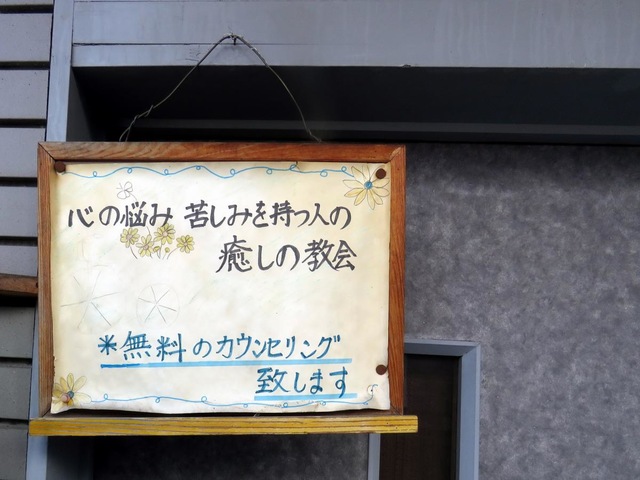 心の悩み 苦しみを持つ人の
癒しの教会
*無料のカウンセリング
致します